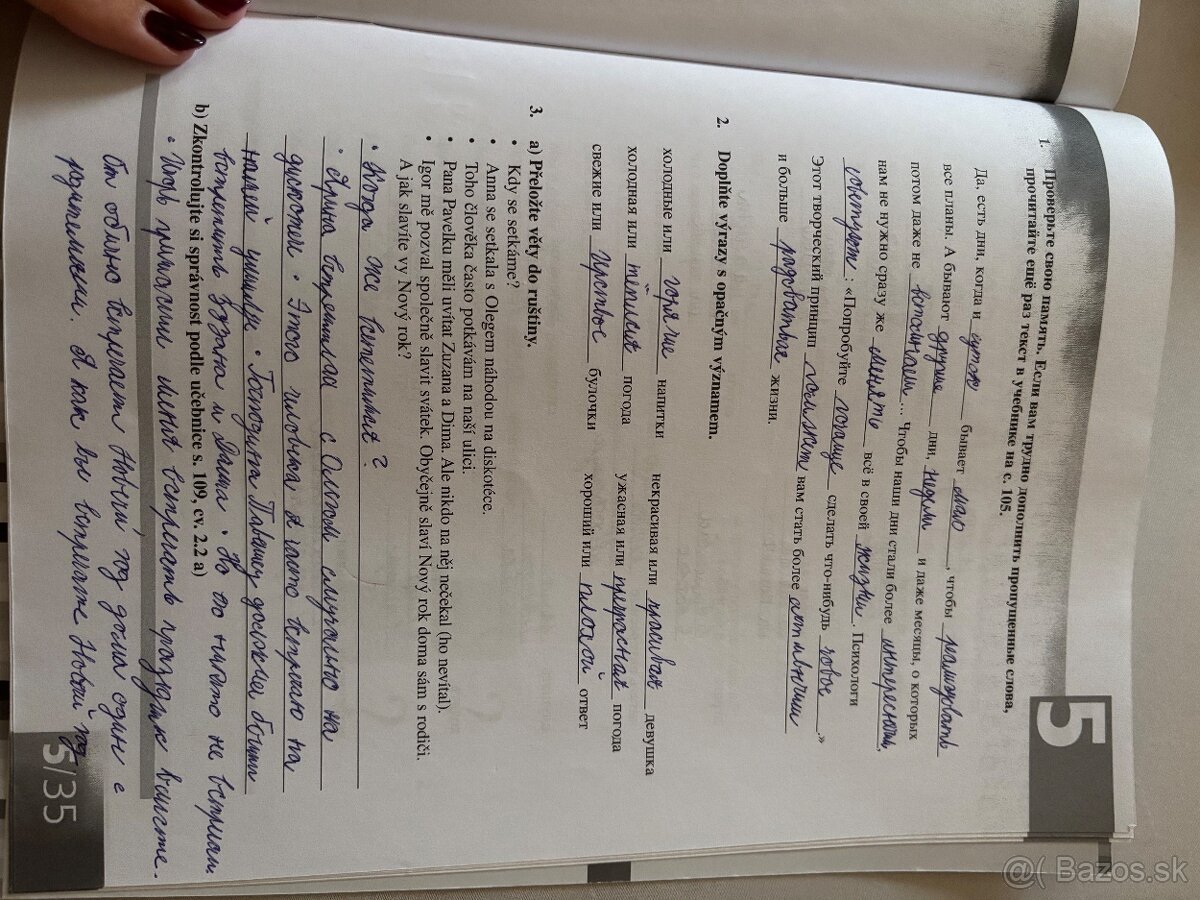 5
1. Проверьте свою память. Если вам трудно дополнить пропущенные слова,
прочитайте ещё раз текст в учебнике на с. 105.
Да, есть дни, когда и бывает мало, чтобы
все планы. А бывают другие дни, недели и даже месяцы, о которых
потом даже не вспоминаем... Чтобы наши дни стали более интересными,
нам не нужно сразу же менять всё в своей жизни. Психологи
советуют: «Попробуйте почаще сделать что-нибудь новое.»
Этот творческий принцип вам стать более
и больше радоваться жизни.
2. Doplňte výrazy s opačným významem.
холодные или горячие напитки
некрасивая или красивая девушка
холодная или тёплая погода
ужасная или прекрасная погода
свежие или чёрствые булочки
хороший или плохой ответ
3. a) Přeložte věty do ruštiny.
• Kdy se setkáme?
• Anna se setkala s Olegem náhodou na diskotéce.
• Toho člověka často potkávám na naší ulici.
• Pana Pavelku měli uvítat Zuzana a Dima. Ale nikdo na něj nečekal (ho nevítal).
• Igor mě pozval společně slavit svátek. Obyčejně slaví Nový rok doma sám s rodiči.
A jak slavíte vy Nový rok?
• Когда же ?
• встретила с Олегом случайно на
дискотеке • Этого человека я часто встречаю на
нашей улице • Господина должны были
встретить Зузана и Дима • Но его никто не
b) Zkontrolujte si správnost podle učebnice s. 109, cv. 2.2 a)
• Игорь пригласил меня встречать праздник вместе.
Он обычно встречает Новый год дома один с
родителями. А как вы встречаете Новый год
5/35
@( Bazos.sk